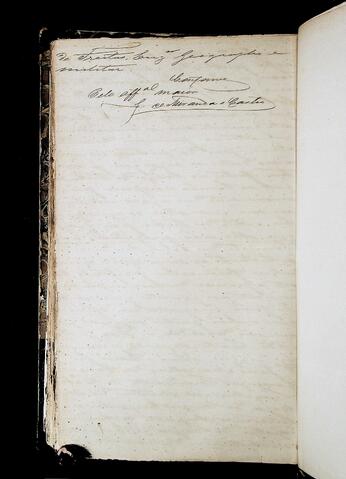 de Freitas, Eng.º Geographo e
militar
Conforme
Pelo Off.al maior
J. de Miranda e Castro